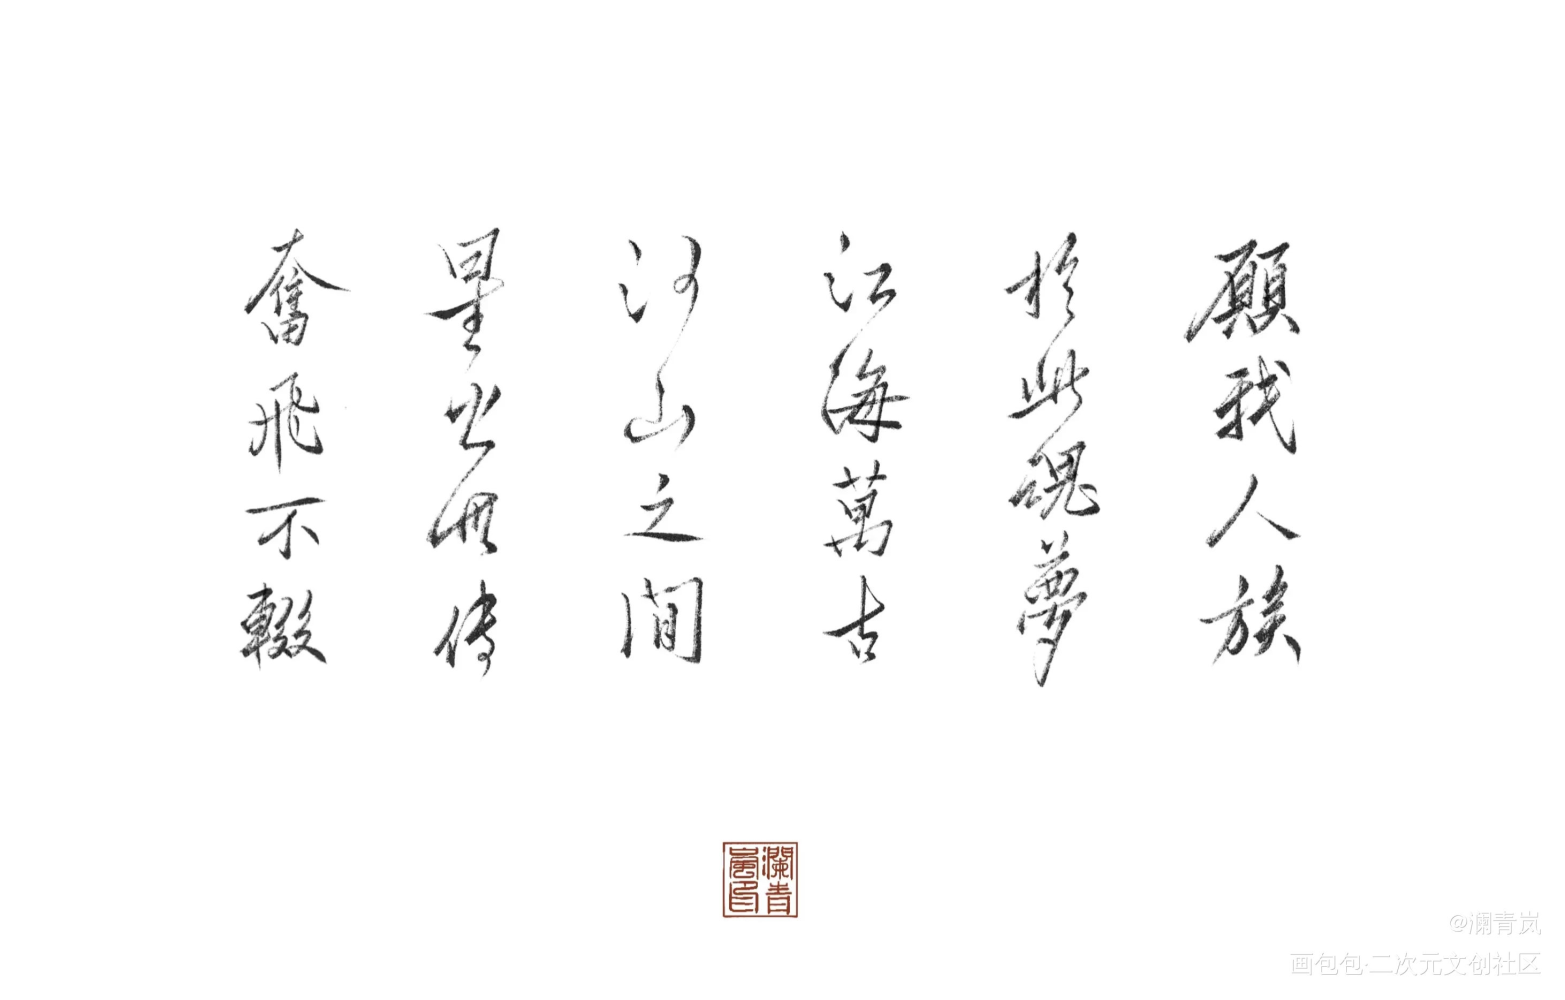 願我人族
於此魂夢
江海萬古
河山之間
星火毋传
奮飛不輟
瀾青嵐印
@澜青岚
画包包·二次元文创社区